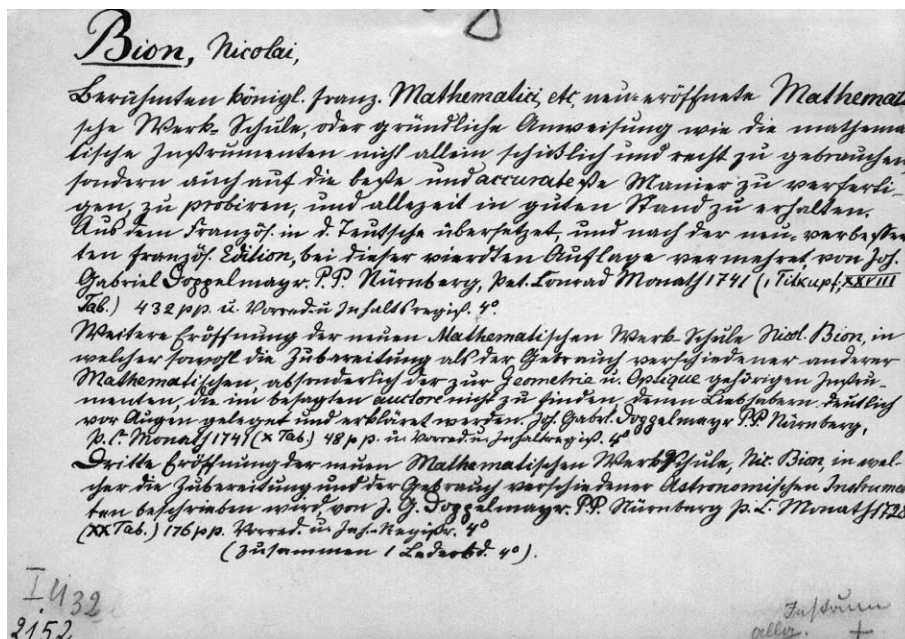 Bion, Nicolai,
Berühmten königl. franz. Mathematici, etc, neu-eröffnete Mathemati
sche Werk-Schule, oder gründliche Anweisung wie die mathema
tische Instrumenten nicht allein schicklich und recht zu gebrauchen,
sondern auch auf die beste und accurateste Manier zu verferti-
gen, zu probiren, und allezeit in guten Stand zu erhalten.
Aus dem Französ. in d. Teutsche übersetzet, und nach der neu-verbesser
ten französ. Edition, bei dieser vierdten Auflage vermehret von Joh.
Gabriel Doppelmayr. P.P. Nürnberg, Pet. Conrad Monath 1741 (1 Titkupf., XXVIII
Tab.) 432 pp. u. Vorred. u Inhaltsregist. 4°
Weitere Eröffnung der neuen Mathematischen Werk-Schule Nicol. Bion, in
welcher sowohl die Zubereitung als der Gebrauch verschiedener anderer
Mathematischen, absonderlich der zur Geometrie u. Optique gehörigen Instru-
menten, die im besagten auctore nicht zu finden, denen Liebhabern deutlich
vor Augen geleget und erkläret werden. Joh. Gabrl. Doppelmayr P.P. Nürnberg,
P. C. Monath 1741 (X Tab.) 48 pp. u. Vorred. u. Inhaltregist. 4°
Dritte Eröffnung der neuen Mathematischen Werkschule, Nic. Bion, in wel-
cher die Zubereitung und der Gebrauch verschiedener Astronomischen Instrumen
ten beschrieben wird, von J. G. Doppelmayr. P.P. Nürnberg P. C. Monath 1728
(XX Tab.) 176 pp. Vorred. u. Inh.-Registr. 4°
(zusammen 1 Lederbd. 4°).
I 4 32
2152
Instrum
allg. +